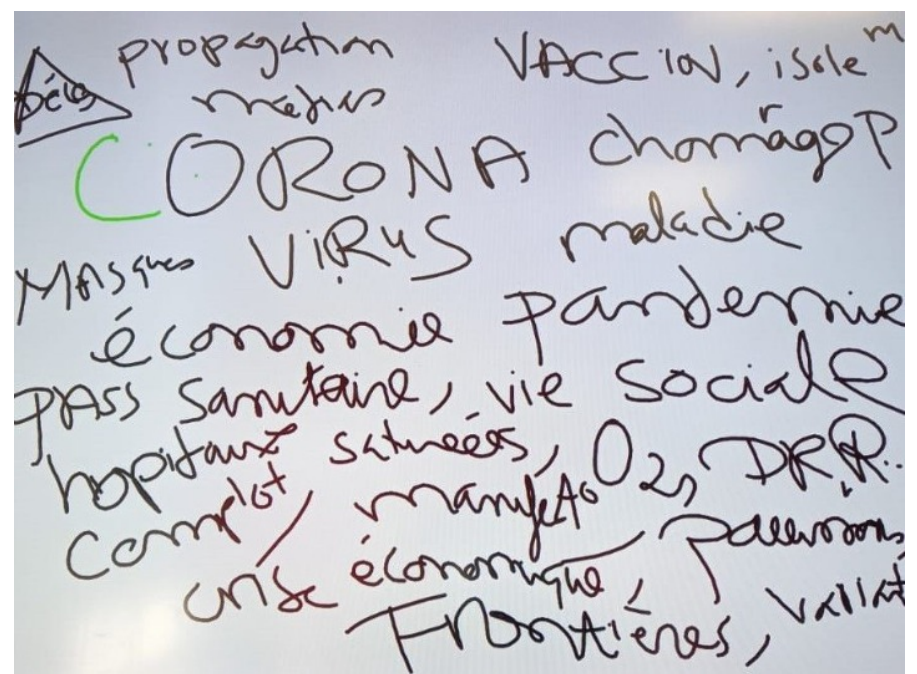 propagation VACCIN, isolem
Décès
CORONA chomâge P
Masques VIRUS maladie
économie pandemie
PASS Sanitaire, vie sociale
hopitaux saturées, O2, DRR.
Complot, manifeto
crise économique,
Frontières, variant